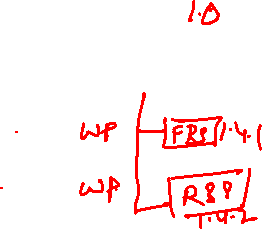 1.0
WP FRS 1.4.1
WP RSP
1.4.2